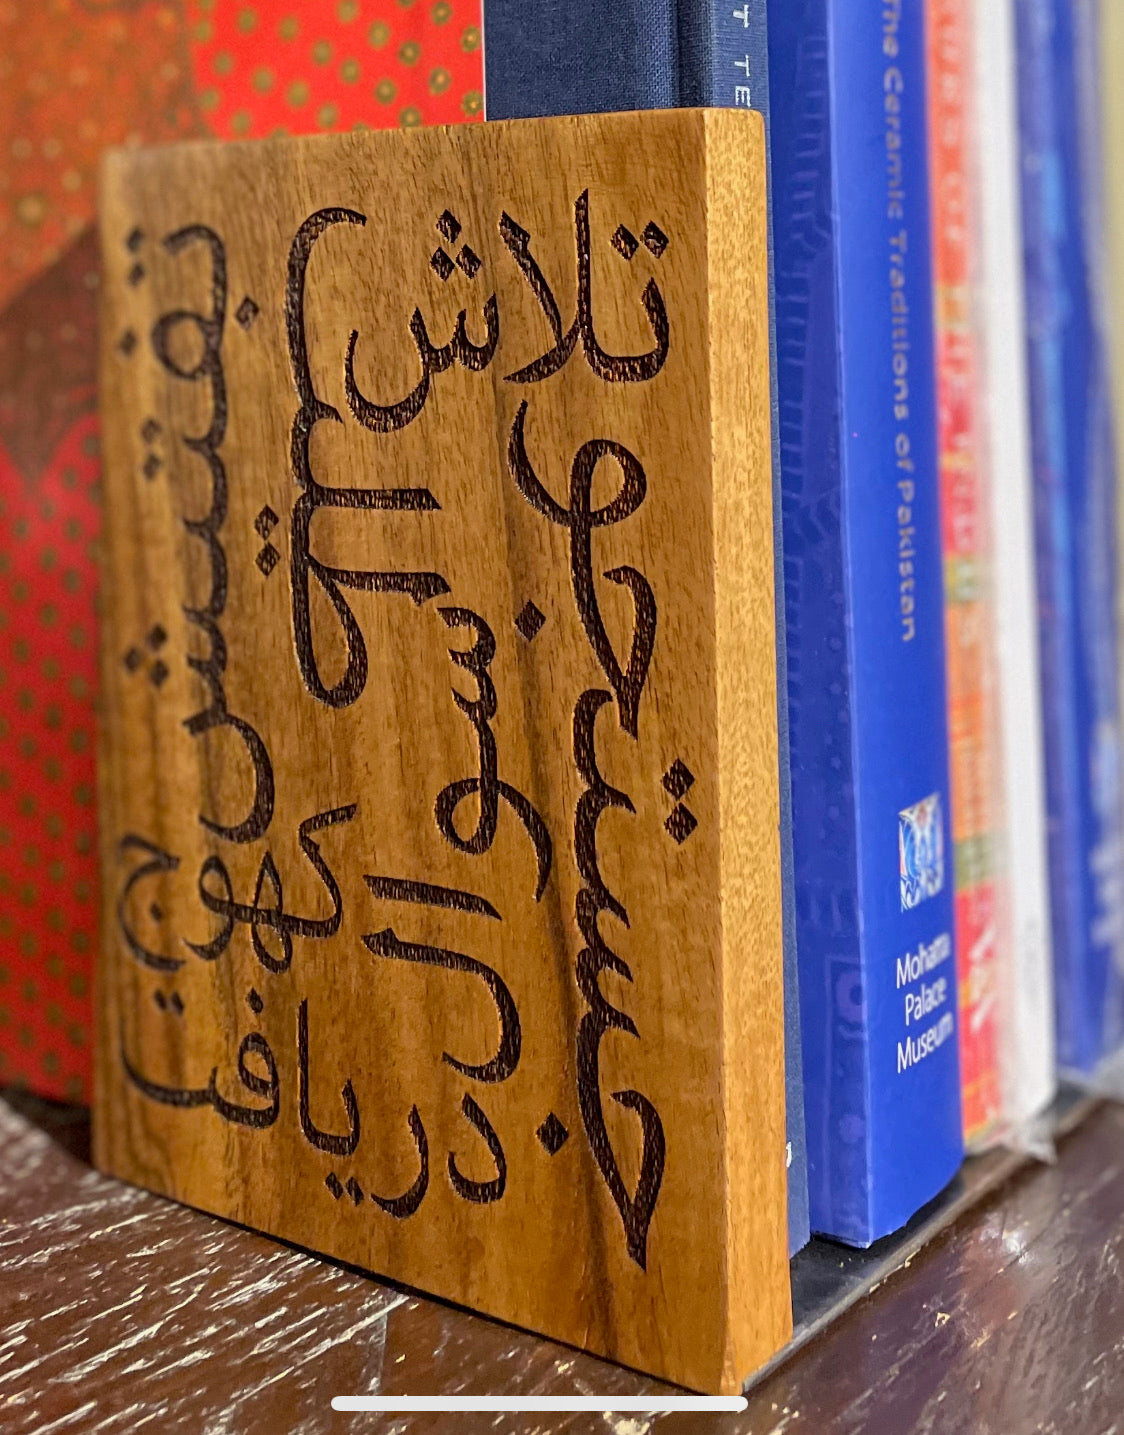 تلاش
جستجو
سوال
طلب
تفتیش
کھوج
دریافت
The Ceramic Traditions of Pakistan
Mohatta
Palace
Museum